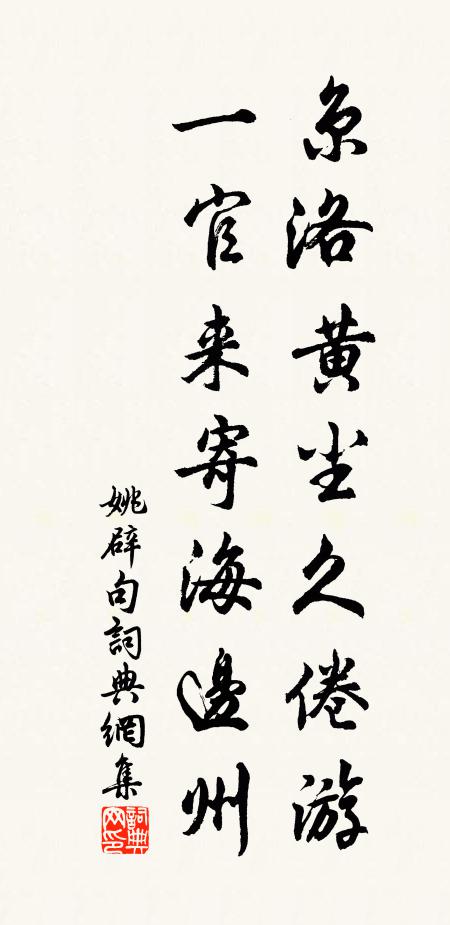 京洛黄尘久倦游
一官来寄海邊州
姚辟句詞典網集
詞典網印